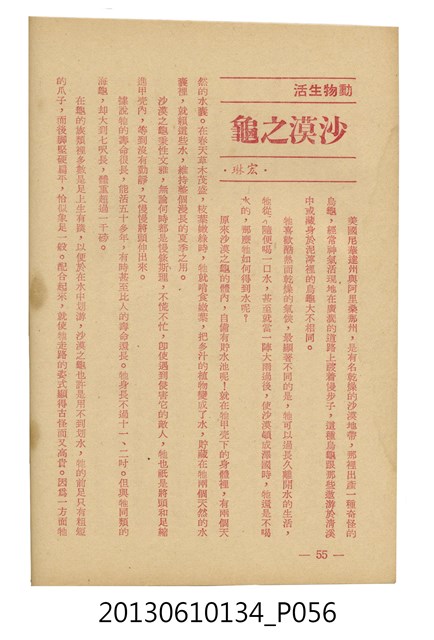 動物生活
沙漠之龜
·宏琳·
美國尼華達州與阿里桑那州，是有名乾燥的沙漠地帶，那裡出產一種奇怪的
烏龜，經常神氣活現地在廣漠的道路上踱着慢步子，這種烏龜跟那些遨游於清溪
中或藏身於泥濘裡的烏龜大不相同。
牠喜歡酷熱而乾燥的氣候，最顯著不同的是，牠可以過長久離開水的生活，
牠從不隨便喝一口水，甚至就當一陣大雨過後，使沙漠頓成澤國時，牠還是不喝
水的，那麼牠如何得到水呢！
原來沙漠之龜的體內，自備有貯水池呢！就在牠甲壳下的身體裡，有兩個天
然的水囊。在春天草木茂盛，枝葉嫩綠時，牠就啃食嫩葉，把多汁的植物變成了水，貯藏在牠兩個天然的水
囊裡，就賴這些水，維持整個漫長的夏季之用。
沙漠之龜秉性文雅，無論何時都是慢條斯理，不慌不忙，即使遇到侵害它的敵人，牠也祇是將頭和足縮
進甲壳內，等到沒有動靜，又慢慢將頭伸出來。
據說牠的壽命很長，能活五十多年，有時甚至比人的壽命還長。牠身長不過十一、二吋。但與牠同類的
海龜，却大到七呎長，體重超過一千磅。
在龜的族類裡多數是足上生有蹼，以便於在水中划游，沙漠之龜也許是用不到划水，牠的前足只有粗短
的爪子，而後脚堅硬扁平，恰似象足一般。配合起來，就使牠走路的姿式顯得古怪而又高貴。因爲一方面牠
— 55 —
20130610134_P056